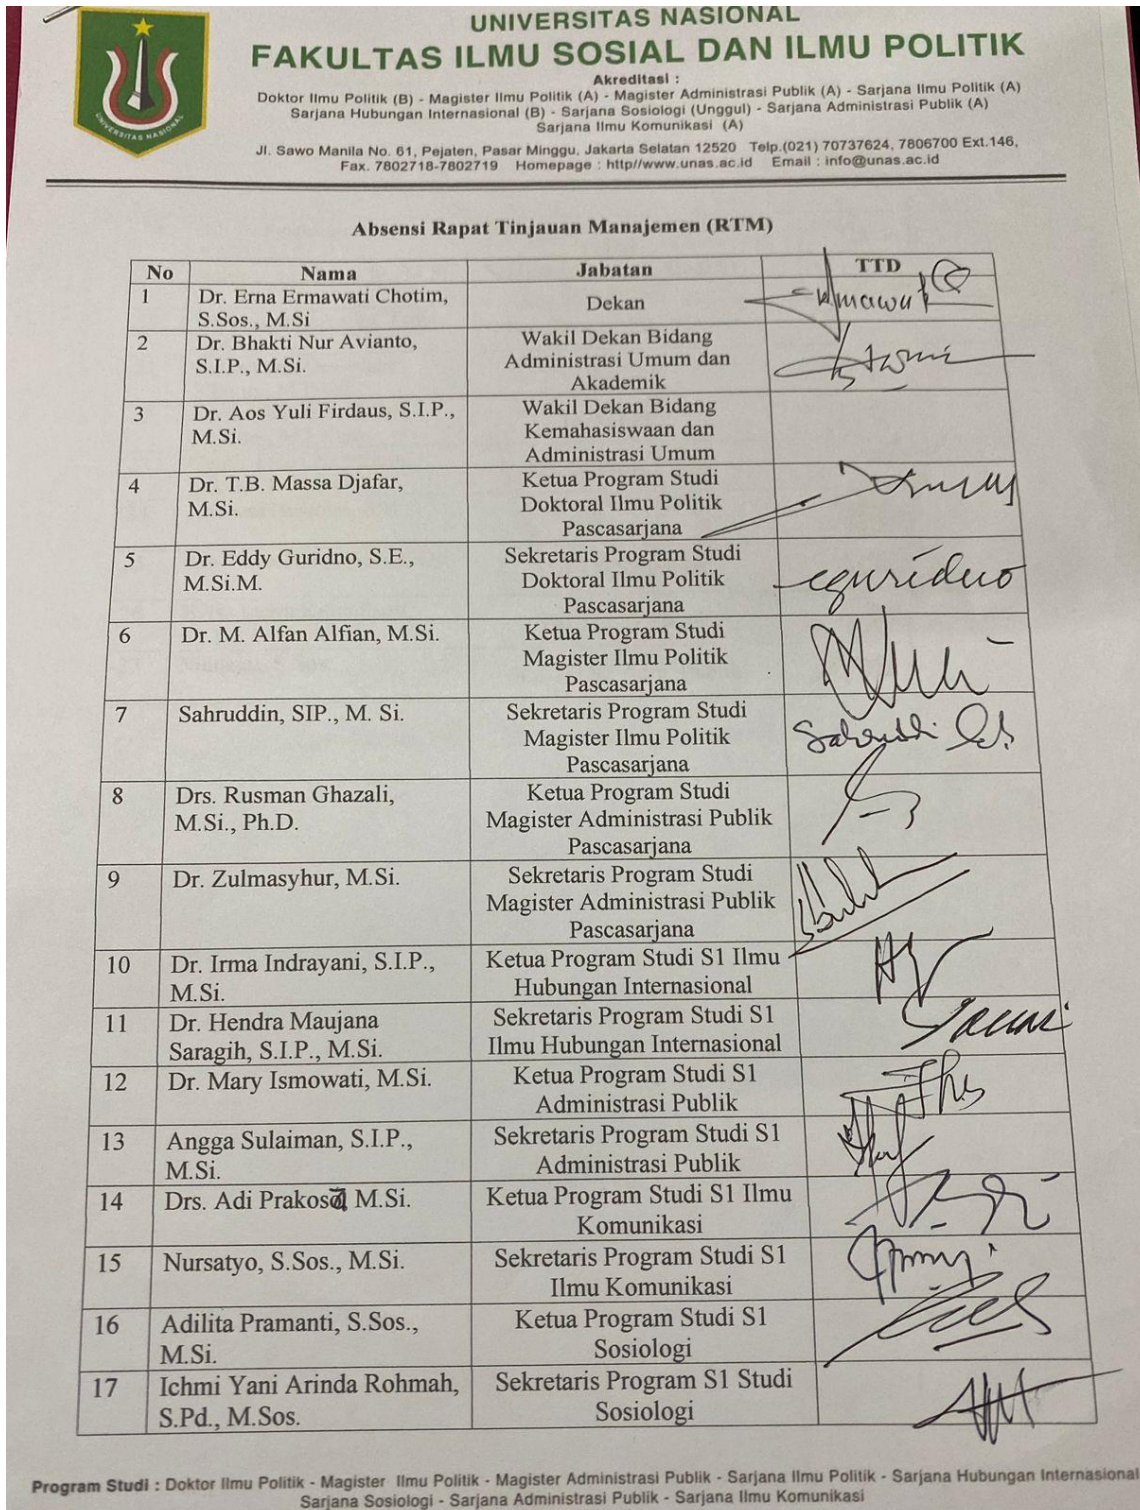 UNIVERSITAS NASIONAL
FAKULTAS ILMU SOSIAL DAN ILMU POLITIK
Akreditasi :
Doktor Ilmu Politik (B) - Magister Ilmu Politik (A) - Magister Administrasi Publik (A) - Sarjana Ilmu Politik (A)
Sarjana Hubungan Internasional (B) - Sarjana Sosiologi (Unggul) - Sarjana Administrasi Publik (A)
Sarjana Ilmu Komunikasi (A)
Jl. Sawo Manila No. 61, Pejaten, Pasar Minggu, Jakarta Selatan 12520 Telp.(021) 70737624, 7806700 Ext.146,
Fax. 7802718-7802719 Homepage : http//www.unas.ac.id Email : info@unas.ac.id
UNIVERSITAS NASIONAL
Absensi Rapat Tinjauan Manajemen (RTM)
No Nama Jabatan TTD
1 Dr. Erna Ermawati Chotim, Dekan
S.Sos., M.Si
2 Dr. Bhakti Nur Avianto, Wakil Dekan Bidang
S.I.P., M.Si. Administrasi Umum dan
Akademik
3 Dr. Aos Yuli Firdaus, S.I.P., Wakil Dekan Bidang
M.Si. Kemahasiswaan dan
Administrasi Umum
4 Dr. T.B. Massa Djafar, Ketua Program Studi
M.Si. Doktoral Ilmu Politik
Pascasarjana
5 Dr. Eddy Guridno, S.E., Sekretaris Program Studi
M.Si.M. Doktoral Ilmu Politik
Pascasarjana
6 Dr. M. Alfan Alfian, M.Si. Ketua Program Studi
Magister Ilmu Politik
Pascasarjana
7 Sahruddin, SIP., M. Si. Sekretaris Program Studi
Magister Ilmu Politik
Pascasarjana
8 Drs. Rusman Ghazali, Ketua Program Studi
M.Si., Ph.D. Magister Administrasi Publik
Pascasarjana
9 Dr. Zulmasyhur, M.Si. Sekretaris Program Studi
Magister Administrasi Publik
Pascasarjana
10 Dr. Irma Indrayani, S.I.P., Ketua Program Studi S1 Ilmu
M.Si. Hubungan Internasional
11 Dr. Hendra Maujana Sekretaris Program Studi S1
Saragih, S.I.P., M.Si. Ilmu Hubungan Internasional
12 Dr. Mary Ismowati, M.Si. Ketua Program Studi S1
Administrasi Publik
13 Angga Sulaiman, S.I.P., Sekretaris Program Studi S1
M.Si. Administrasi Publik
14 Drs. Adi Prakosa, M.Si. Ketua Program Studi S1 Ilmu
Komunikasi
15 Nursatyo, S.Sos., M.Si. Sekretaris Program Studi S1
Ilmu Komunikasi
16 Adilita Pramanti, S.Sos., Ketua Program Studi S1
M.Si. Sosiologi
17 Ichmi Yani Arinda Rohmah, Sekretaris Program S1 Studi
S.Pd., M.Sos. Sosiologi
Program Studi : Doktor Ilmu Politik - Magister Ilmu Politik - Magister Administrasi Publik - Sarjana Ilmu Politik - Sarjana Hubungan Internasional
Sarjana Sosiologi - Sarjana Administrasi Publik - Sarjana Ilmu Komunikasi